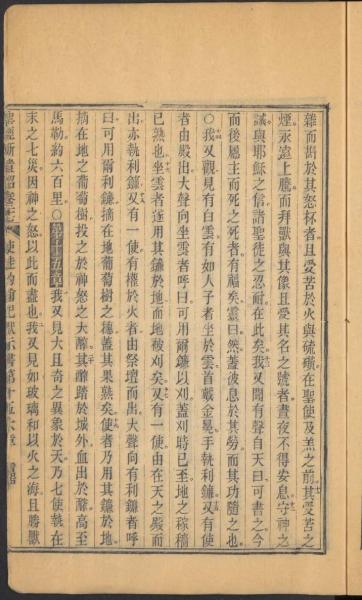 雜而斟於其怒杯者且受苦於火與硫磺在聖使及羔之前其受苦之
煙永遠上騰而拜獸與其像且受其名之號者晝夜不得安息守神之
誡與耶穌之信諸聖徒之忍耐在此矣我又聞有聲自天曰可書之今
而後屬主而死之死者有福矣靈曰然蓋彼息於其勞而其功隨之也
○我又觀見有白雲有如人子者坐於雲首戴金冕手執利鐮又有使
者由殿出大聲向坐雲者呼曰可用爾鐮以刈蓋刈時已至地之稼穡
已熟也坐雲者遂用其鐮於地而地被刈矣又有一使由在天之殿而
出亦執利鐮又有一使有權於火者由祭壇而出大聲向有利鐮者呼
曰可用爾利鐮摘在地葡萄樹之穗蓋其果熟矣使者乃用其鐮於地
摘在地之葡萄樹投之於神怒之大醡其醡踏於城外血出於醡高至
馬勒約六百里○第十五章我又見大且奇之異象於天乃七使執在
末之七災因神之怒以此而盡也我又見如玻璃和以火之海且勝獸
聖經新遺詔 使徒約翰天啟示書第十五章